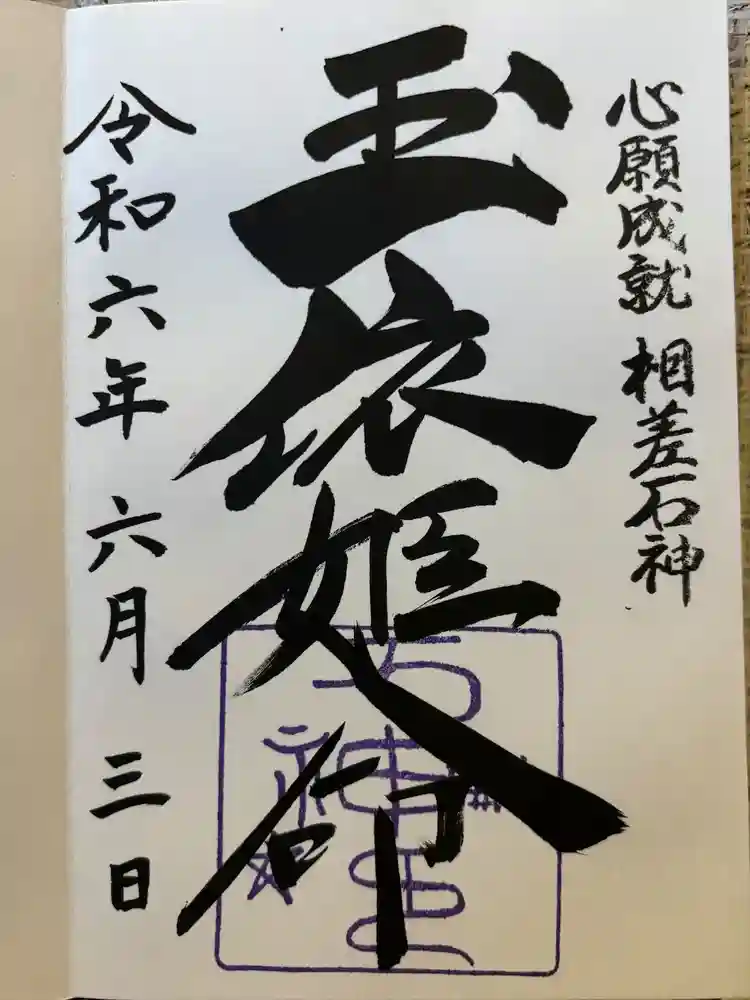 心願成就 相差石神
玉依姫命
令和六年 六月 三日
石神